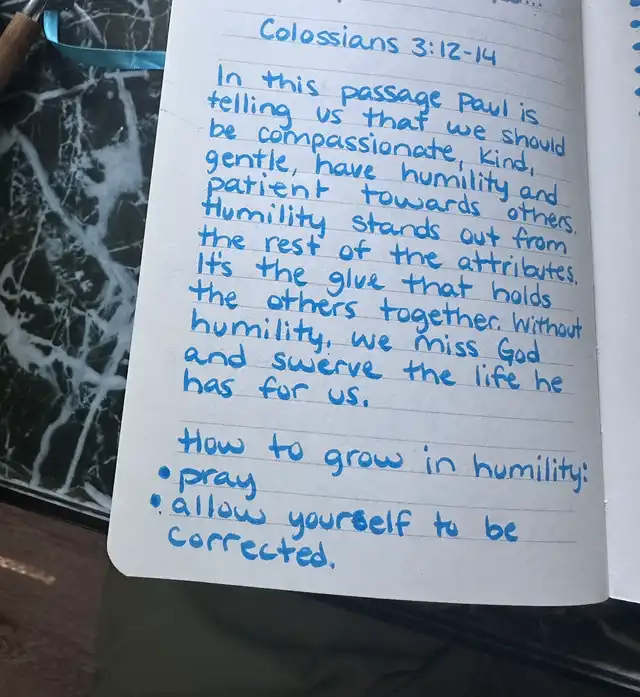 Colossians 3:12-14
In this passage Paul is
telling us that we should
be compassionate, kind,
gentle, have humility and
patient towards others.
Humility stands out from
the rest of the attributes.
It's the glue that holds
the others together. Without
humility, we miss God
and swerve the life he
has for us.
How to grow in humility:
• pray
• allow yourself to be
corrected.